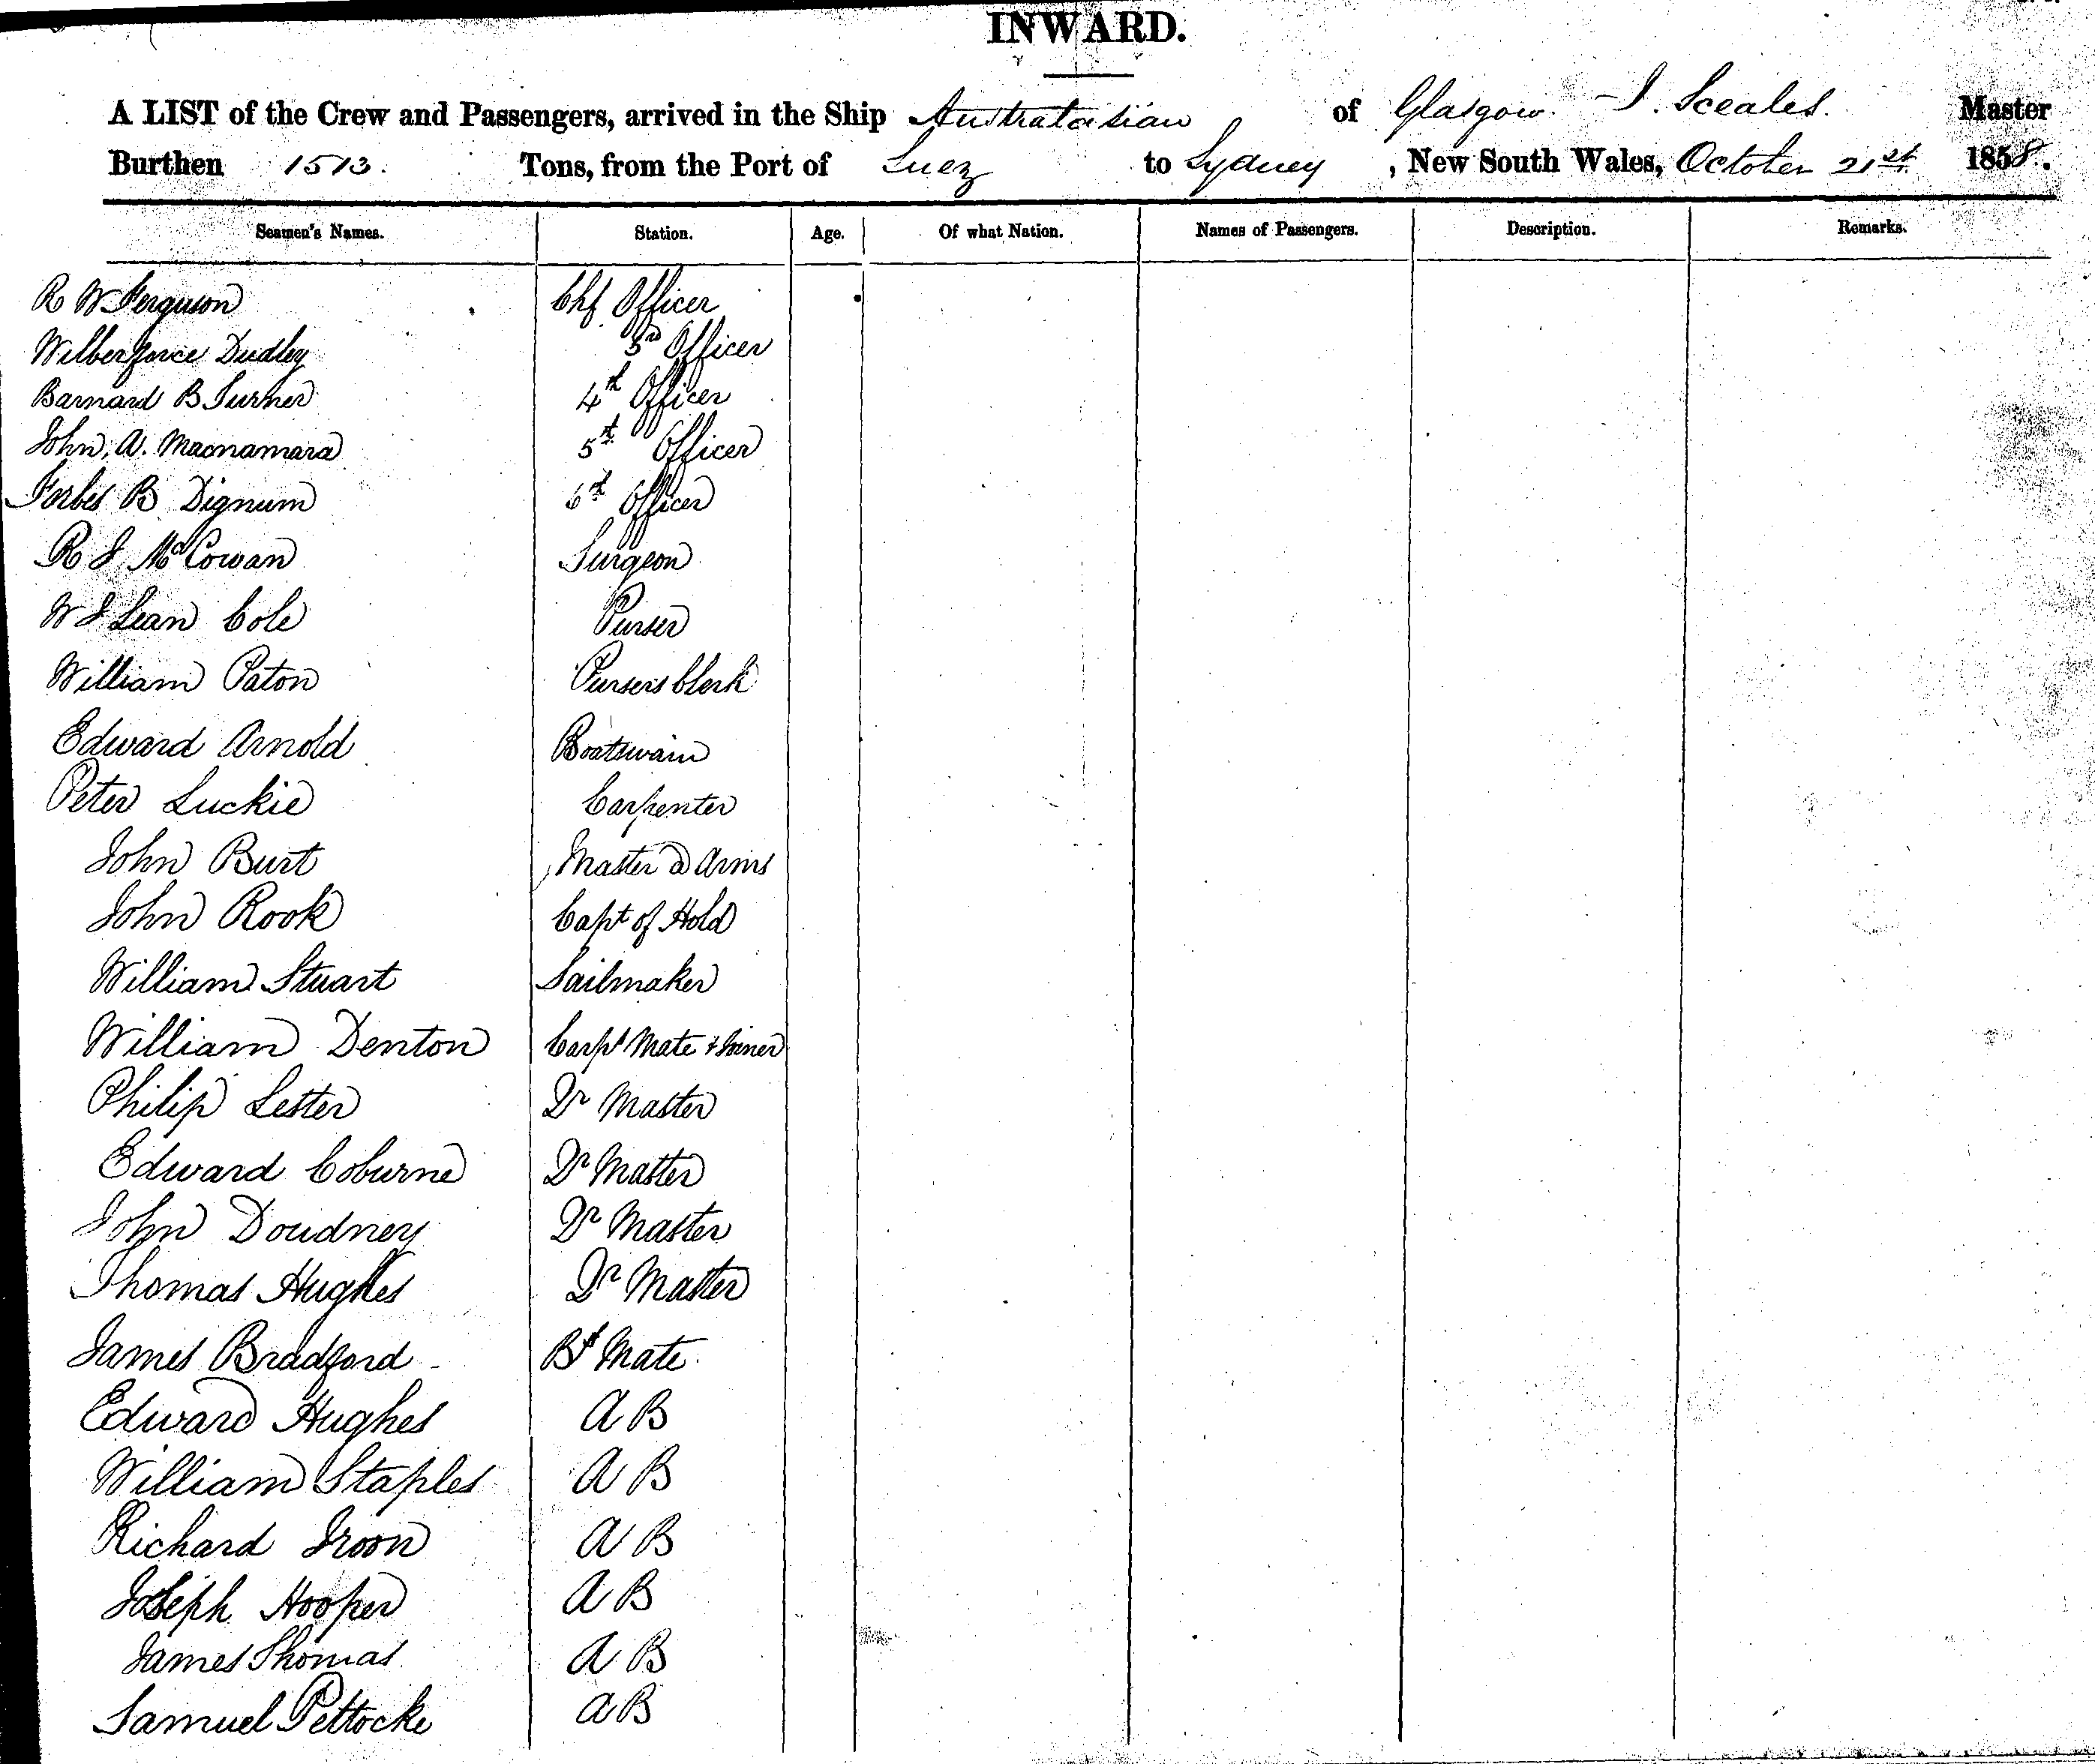 INWARD.
A LIST of the Crew and Passengers, arrived in the Ship Australasian of Glasgow. J. Sceales. Master
Burthen 1513. Tons, from the Port of Suez to Sydney, New South Wales, October 21st 1858.
Seamen's Names. Station. Age. Of what Nation. Names of Passengers. Description. Remarks.
R W Ferguson Chf Officer
Wilberforce Dudley 3rd Officer
Barnard B Turner 4th Officer
John A. Macnamara 5th Officer
Forbes B Dignum 6th Officer
R J McCowan Surgeon
W J Lean Cole Purser
William Paton Pursers Clerk
Edward Arnold Boatswain
Peter Luckie Carpenter
John Burt Master @ Arms
John Rook Capt of Hold
William Stuart Sailmaker
William Denton Carpt Mate & Joiner
Philip Lester Qr Master
Edward Coburne Qr Master
John Doudney Qr Master
Thomas Hughes Qr Master
James Bradford Bt Mate
Edward Hughes A B
William Staples A B
Richard Iroon A B
Joseph Hooper A B
James Thomas A B
Samuel Pettocke A B